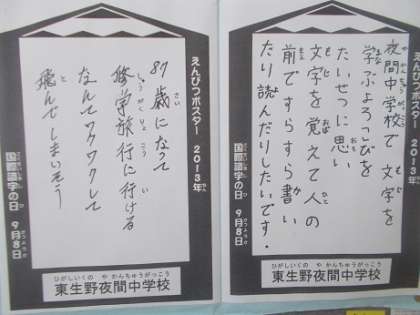 えんぴつポスター 2013年
夜間中学校で文字を
学ぶよろこびを
たいせつに思い
文字を覚えて人の
前ですらすら書い
たり読んだりしたいです。
国際識字の日 9月8日
ひがしいくの や かんちゅうがっこう
東生野夜間中学校
えんぴつポスター 2013年
87歳になって
修学旅行に行ける
なんてワクワクして
飛んでしまいそう
国際識字の日 9月8日
ひがしいくの や かんちゅうがっこう
東生野夜間中学校